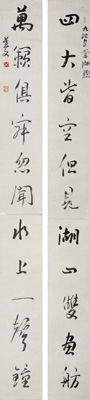 四大皆空但見湖山雙畫舫
萬籟俱寂忽聞水上一聲鐘